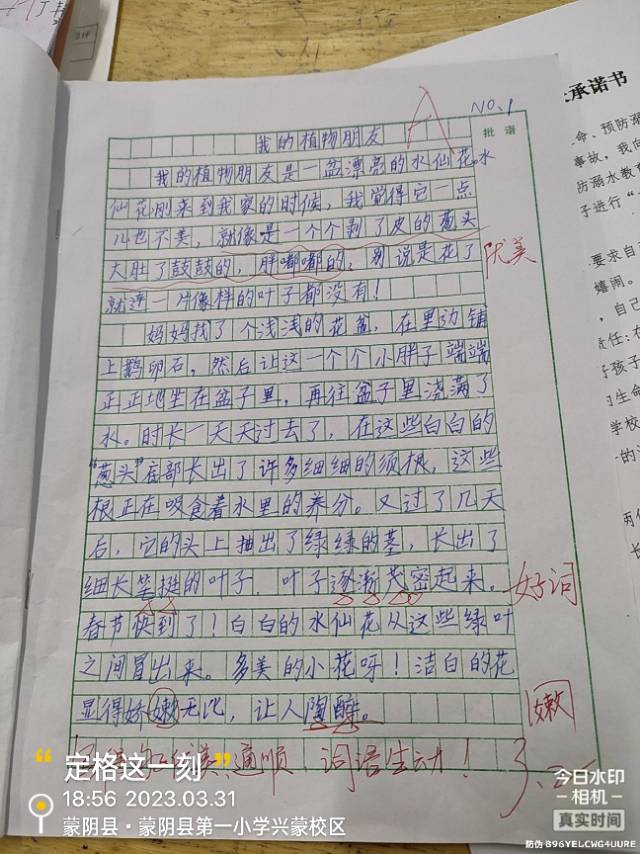 NO.1
A
批语
我的植物朋友
我的植物朋友是一盆漂亮的水仙花。水
仙花刚来到我家的时候，我觉得它一点
儿也不美，就像是一个个剥了皮的葱头
大肚了鼓鼓的，胖嘟嘟的，别说是花了
优美
就连一片像样的叶子都没有！
妈妈找了个浅浅的花盆，在里边铺
上鹅卵石，然后让这一个个小胖子端端
正正地坐在盆子里，再往盆子里浇满了
水。时长一天天过去了，在这些白白的
"葱头"底部长出了许多细细的须根，这些
根正在吸食着水里的养分。又过了几天
后，它的头上抽出了绿绿的茎，长出了
细长笔挺的叶子，叶子逐渐茂密起来。
好词
春节快到了！白白的水仙花从这些绿叶
之间冒出来。多美的小花呀！洁白的花
显得娇嫩无比，让人陶醉。
嫩
优美通顺，词语生动！
3.
承诺书
命、预防溺
事故，我向
防溺水教育
子进行“
要求自
嬉闹。
，自己
责任：在
好孩子
的生命
学校
的
两
长
定格这一刻
18:56 2023.03.31
蒙阴县·蒙阴县第一小学兴蒙校区
今日水印
相机
真实时间
防伪 B96YELCWG4UURE